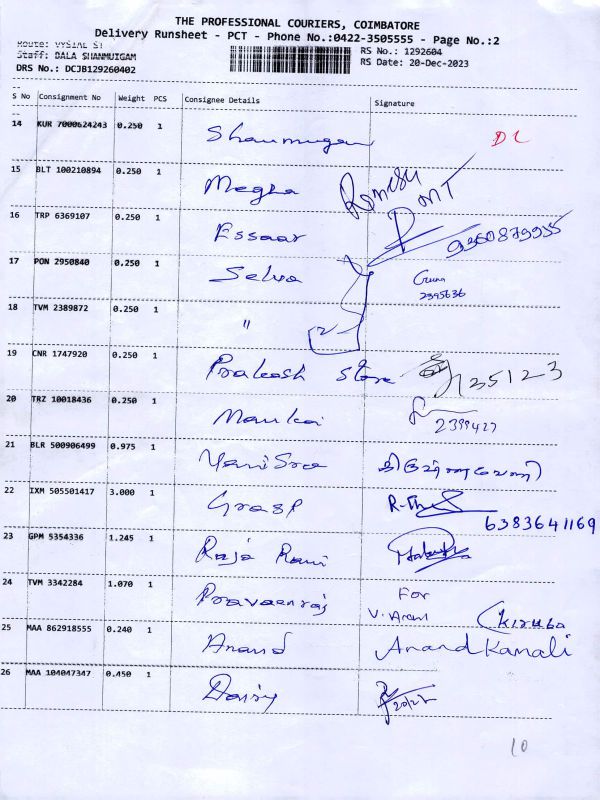 THE PROFESSIONAL COURIERS, COIMBATORE
Delivery Runsheet - PCT - Phone No.:0422-3505555 - Page No.:2
Route: VYSIAL ST
Staff: BALA SHANMUIGAM
DRS No.: DCJB129260402
RS No.: 1292604
RS Date: 20-Dec-2023
S No Consignment No Weight PCS Consignee Details Signature
14 KUR 7000624243 0.250 1 Shanmugam DL
15 BLT 100210894 0.250 1 Megha Romesu
16 TRP 6369107 0.250 1 Essaar 9360879955
17 PON 2950840 0.250 1 Selva Guna
2395636
18 TVM 2389872 0.250 1 "
19 CNR 1747920 0.250 1 Prakash Store 125123
20 TRZ 10018436 0.250 1
2399427
21 BLR 500906499 0.975 1
22 IXM 505501417 3.000 1 Grasp
6383641169
23 GPM 5354336 1.245 1 Raja Rani
24 TVM 3342284 1.070 1 Pravaenraj For
Kiruba
25 MAA 862918555 0.240 1 Anand Anand Kamali
26 MAA 104047347 0.450 1 Dairy
10